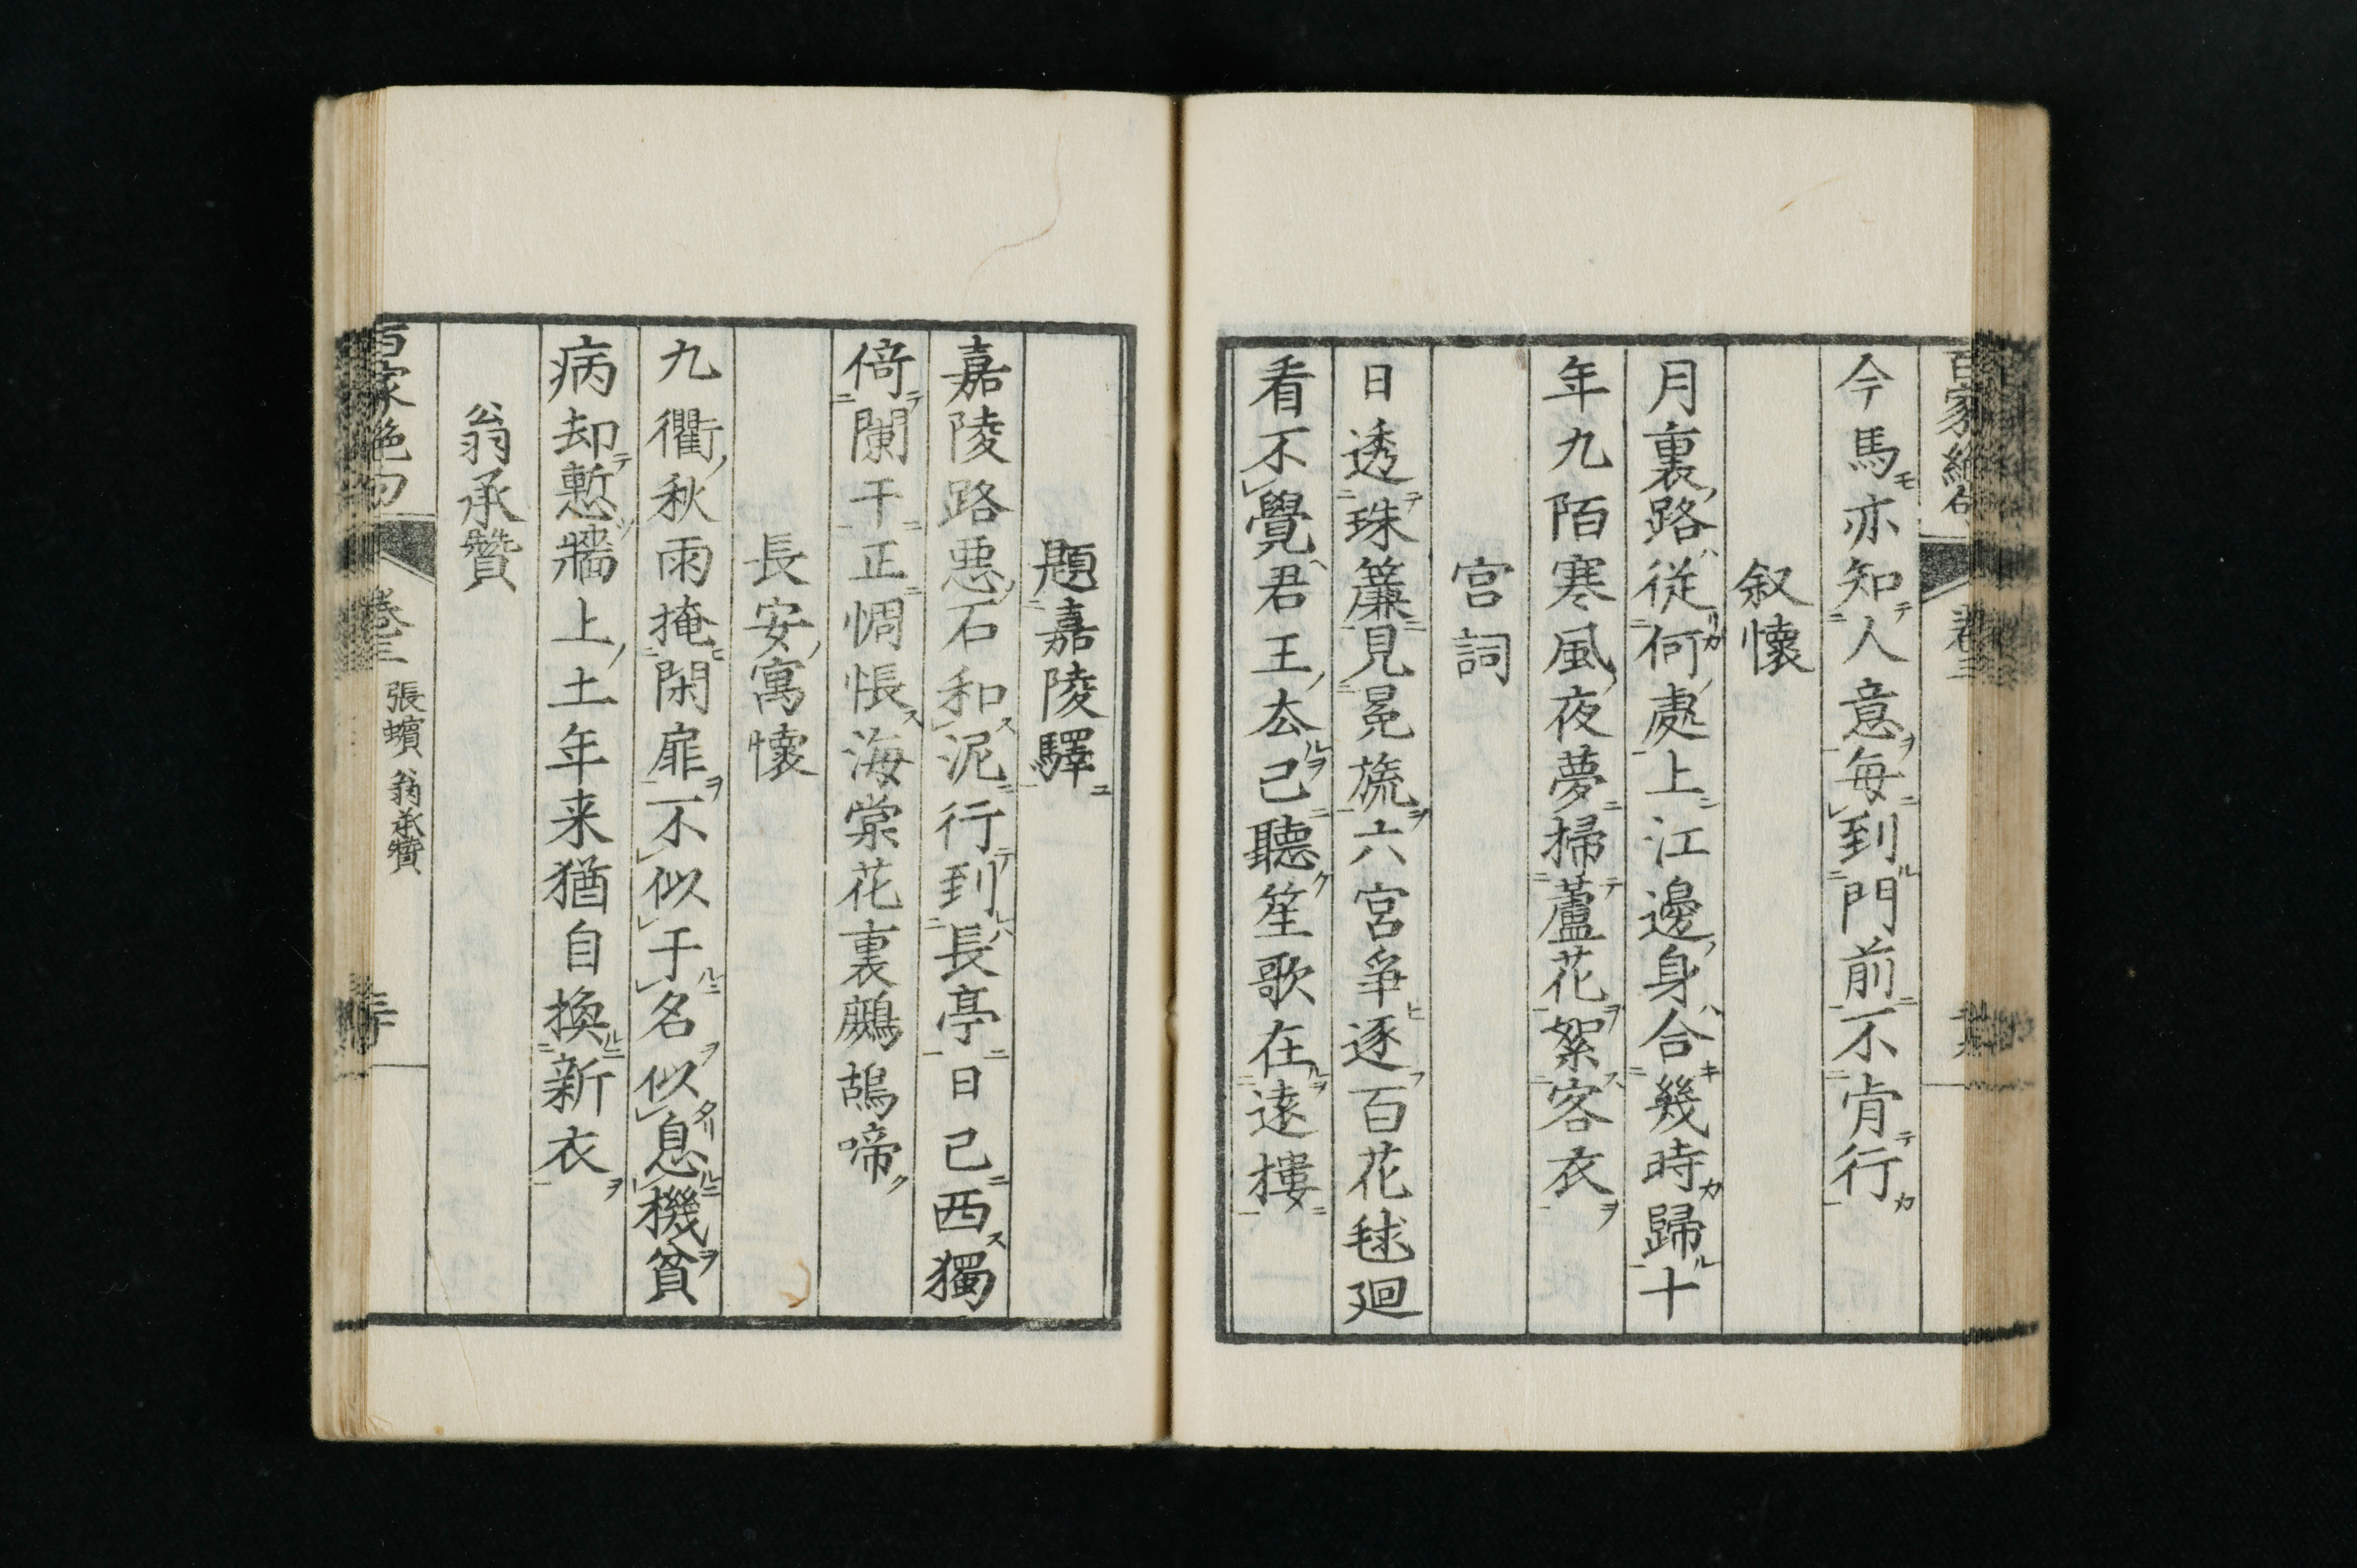 今馬亦知人意每到門前不肯行
叙懷
月裏路從何處上江邊身合幾時歸十
年九陌寒風夜夢掃蘆花絮客衣
宮詞
日透珠簾見冕旒六宮爭逐百花毬廻
看不覺君王去已聽笙歌在遠樓
題嘉陵驛
嘉陵路惡石和泥行到長亭日已西獨
倚闌干正惆悵海棠花裏鷓鴣啼
長安寓懷
九衢秋雨掩閑扉不似于名似息機貧
病却慙牆上土年来猶自換新衣
翁承贊
百家絶句
卷三
張蠙 翁承贊